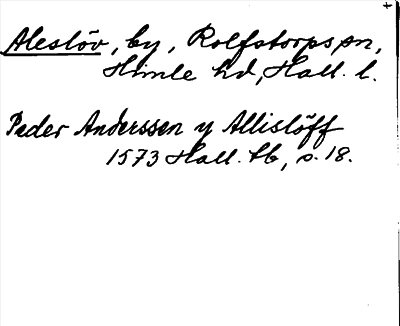 Aleslöv, by, Rolfstorps sn,
Himle hd, Hall. l.
Peder Anderssen y Allislöff
1573 Hall. tb, s. 18.